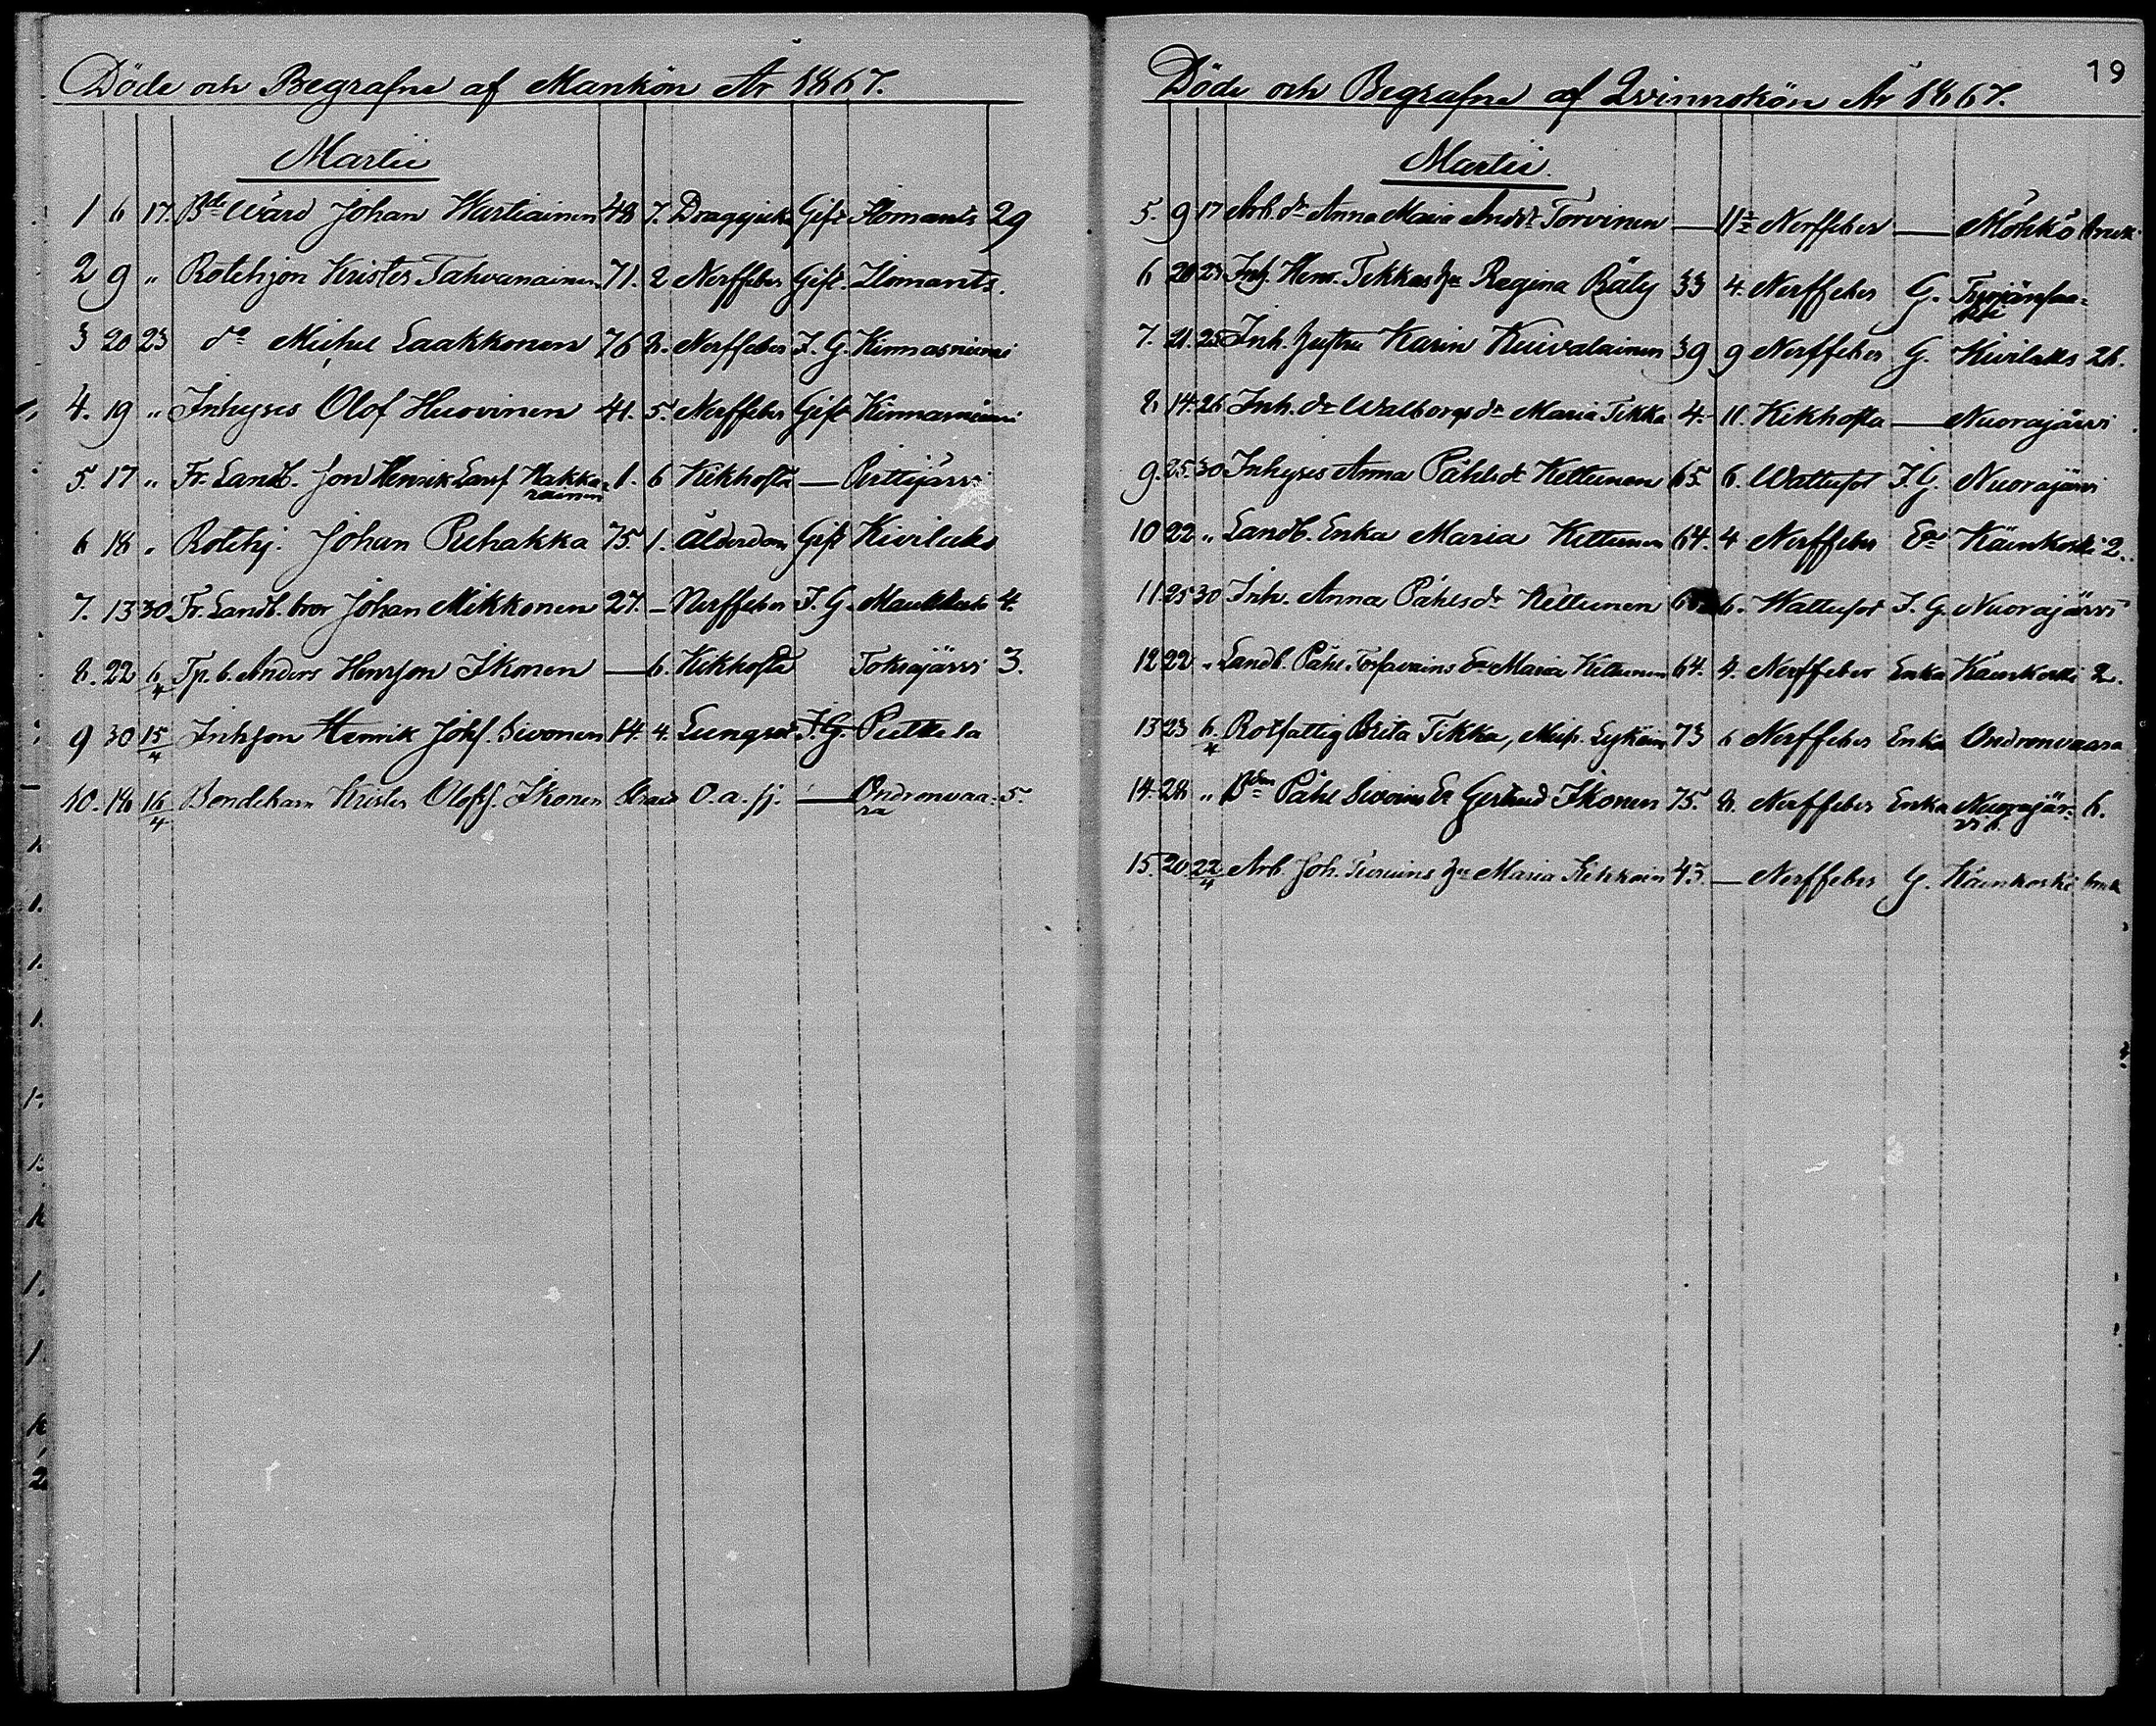 Döde och Begrafne af Mankön År 1867.
Martii
1 6 17. Bde Wärd Johan Wartiainen 48 7. Dragsjuka Gift Ilomants 29
2 9 " Rotehjon Krister Tahvanainen 71. 2 Nerffeber Gift. Ilomants.
3 20 23 do Michel Laakkonen 76 2. Nerffeber F. G. Kinnasniemi
4. 19 " Inhyses Olof Huovinen 41. 5. Nerffeber Gift Kinnasniemi
5. 17 " Fr. Landb. Son Henrik Larsf Makka-
rainen 1. 6 Kikhosta — Perttijärvi
6 18 " Rotehj. Johan Puhakka 75. 1. Ålderdom Gift Kivilaks
7. 13 30. Fr. Landb. bror Johan Mikkonen 27. — Nerffeber F. G. 4.
8. 22 6/4 Tp. b. Anders Henrson Ikonen — 6. Kikhosta Toksajärvi 3.
9 30 15/4 Inhson Henrik Johsf. Sivonen 14. 4. Lungsot F. G. Putkela
10. 18 16/4 Bondebarn Krister Olofsf. Ikonen Straxt O. a. sj. — Ondronvaa-
ra 5.
19
Döde och Begrafne af Qvinnokön År 1867.
Martii.
5. 9 17 Arb. dr Anna Maria Andsdr Torvinen — 11 Nerffeber — Möhkö bruk
6 20 23 Inh. Henr. Tikkas hu Regina Räty 33 4. Nerffeber G.
7. 21. 25 Inh. hustru Karin Kuivalainen 39 9 Nerffeber G. Kivilaks 26.
8. 14. 26 Inh. dr Walborgs dr Maria Tikka 4. 11. Kikhosta — Nuorajärvi
9. 25. 30 Inhyses Anna Påhlsdr Kettunen 65. 6. Wattusot F. G. Nuorajärvi
10 22 " Landb. Enka Maria Kettunen 64. 4 Nerffeber Ea Käenkoski 2.
11 25 30 Inh. Anna Påhlsdr Kettunen 6. Wattusot F. G. Nuorajärvi
12 22 " Landb. Påhl Ea Maria Kettunen 64. 4. Nerffeber Enka Käenkoski 2.
13 23 6/4 Rotfattig Brita Tikka, 73 6 Nerffeber Enka Ondronvaara
14. 28. " Bden Påhl Sivoins Ea Gertrud Ikonen 75. 8. Nerffeber Enka Nuorajär-
vi 6. 6.
15. 20 22/4 Arb. Joh. hu Maria 45. — Nerffeber G. Käenkoski bruk